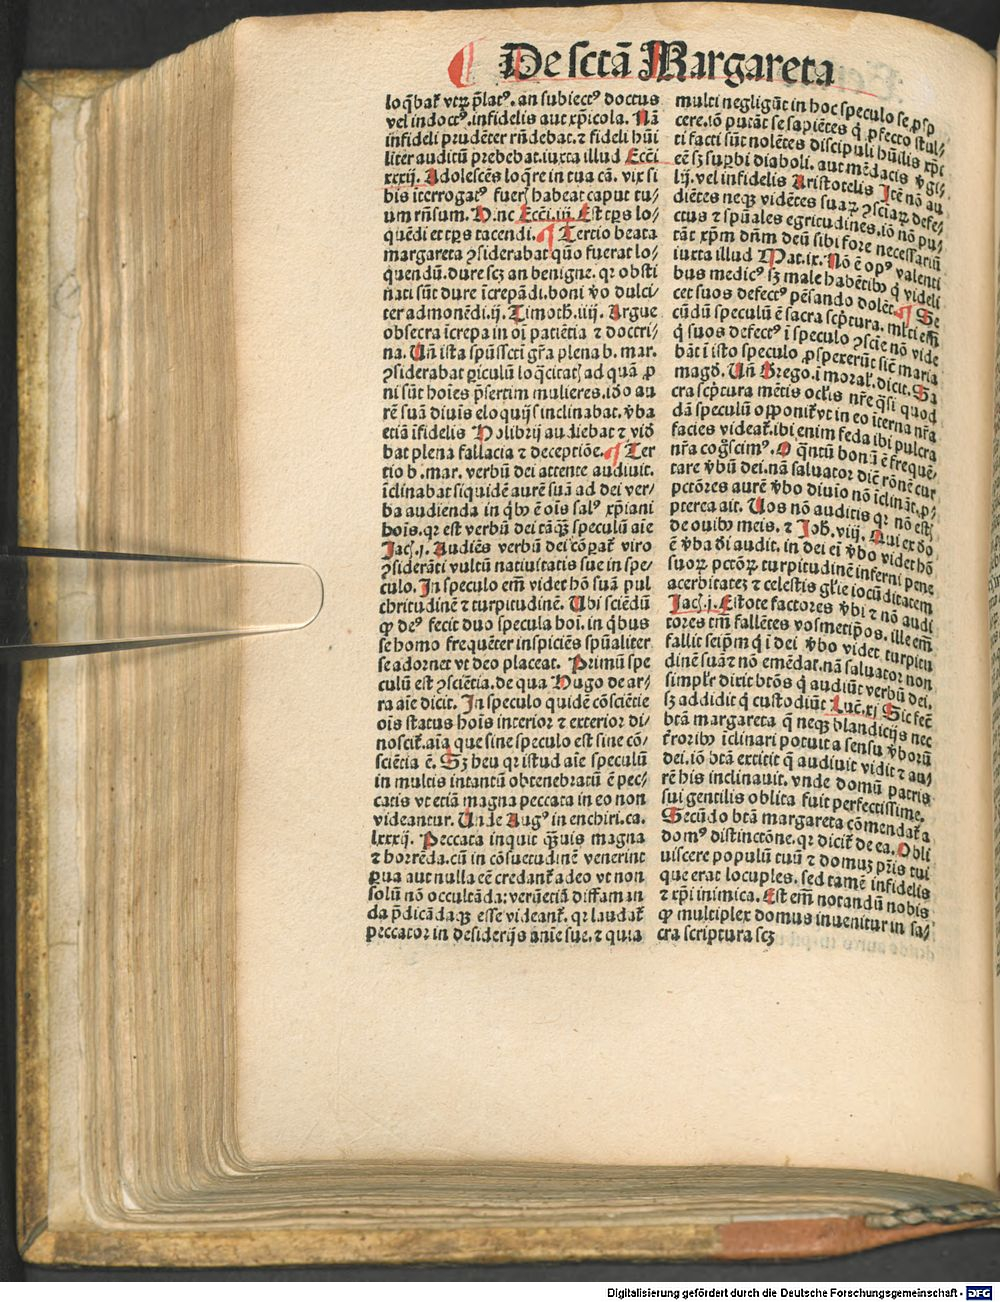 De sctā Margareta
loq̄bat᷑ vtꝝ p̄latꝰ. an subiectꝰ doctus
vel indoctꝰ. infidelis aut xp̄icola. Nā
infideli prudēter rn̄debat. ⁊ fideli hūi
liter auditū prebebat. iuxta illud Ecci
xxxij. Adolescēs loq̄re in tua cā. vix si
bis īterrogatꝰ fuerꝭ habeat caput tu⸗
um rn̄sum. Hinc Ecci. iij. Est tp̄s lo⸗
quēdi et tp̄s tacendi. Tertio beata
margareta ꝯsiderabat quō fuerat lo⸗
quendū. dure scꝫ an benigne. qꝛ obsti
nati sūt dure īcrepādi. boni v̄o dulci⸗
ter admonēdi. ij. Timoth. iiij. Argue
obsecra īcrepa in oī patiētia ⁊ doctri⸗
na. Un̄ ista spūssctī gr̄a plena b. mar.
ꝯsiderabat ꝑiculū loq̄citatꝭ ad quā ꝓ
ni sūt hoīes p̄sertim mulieres. iō au
rē suā diuīs eloquijs inclinabat. v̄ba
etiā īfidelis Holibrij audiebat ⁊ vid̄
bat plena fallacia ⁊ deceptiōe. Ter
tio b. mar. verbū dei attente audiuit.
īclinabat siquidē aurē suā ad dei ver⸗
ba audienda in q̄bꝰ ē oīs salꝰ xp̄iani
hoīs. qꝛ est verbū dei tāqꝫ speculū aīe
Jacꝭ. j. Audiēs verbū dei cōꝑat᷑ viro
ꝯsiderāti vultū natiuitatis sue in spe⸗
culo. In speculo em̄ videt hō suā pul
chritudinē ⁊ turpitudinē. Ubi sciēdū
ꝙ deꝰ fecit duo specula hoī. in q̄bus
se homo frequēter inspiciēs spūaliter
se adornet vt deo placeat. Primū spe
culū est ꝯsciētia. de qua Hugo de ar⸗
ra aīe dicit. In speculo quidē cōsciētie
oīs status hoīs interior ⁊ exterior di⸗
noscit᷑. aīa que sine speculo est sine cō⸗
sciētia ē. Sꝫ heu qꝛ istud aīe speculū
in multis intantū obtenebratū ē pec⸗
catis vt etiā magna peccata in eo non
videantur. Unde Augꝰ in enchiri. ca.
lxxxij. Peccata inquit q̄ꝫuis magna
⁊ horrēda. cū in cōsuetudinē venerint
ꝑua aut nulla eē credant᷑ adeo vt non
solū nō occultāda: verūetiā diffaman
da p̄dicādaqꝫ esse videant᷑. qꝛ laudat᷑
peccator in desiderijs anīe sue. ⁊ quia
multi negligūt in hoc speculo se ꝓsp
cere. iō putāt se sapiētes q̄ ꝓfecto stul⸗
ti facti sūt nolētes discipuli hūilis xp̄i
eē sꝫ suꝑbi diaboli. aut mēdacis v̄gi⸗
lij. vel infidelis Aristotelis Itē nō au
diētes neqꝫ vidētes suaꝝ ꝯsciaꝝ defe⸗
ctus ⁊ spūales egritudines. iō nō pu⸗
tāt xp̄m dn̄m deū sibi fore necessariū
iuxta illud Mat. ix. Nō ē opꝰ valenti
bus medicꝰ sꝫ male habētibꝰ q̄ videli
cet suos defectꝰ pēsando dolēt. Se
cūdū speculū ē sacra scp̄tura. mlti em̄
q̄ suos defectꝰ ī speculo ꝯsciē nō vide
bāt ī isto speculo ꝓspexerūt sic̄ maria
magd̄. Un̄ Grego. ī moral᷑. dicit. Sa
cra scp̄tura mētis oc̄lis nr̄e q̄si quod
dā speculū opponit᷑ vt in eo īterna nr̄a
facies videat᷑. ibi enim feda ibi pulcra
nr̄a cog̃scimꝰ. O q̄ntū bonū ē frequē⸗
tare v̄bū dei. nā saluator dic̄ rōnē cur
pctōres aurē v̄bo diuīo nō īclināt. ꝓ⸗
pterea ait. Uos nō auditis qꝛ nō estꝭ
de ouibꝰ meis. ⁊ Joh. viij. Qui ex d̄o
ē v̄ba dī audit. in dei em̄ v̄bo videt hō
suoꝝ pctōꝝ turpitudinē inferni pene
acerbitatē ⁊ celestis gl̄ie iocūditatem
Jacꝭ. j. Estote factores v̄bi ⁊ nō audi
tores tm̄ fallētes vosmetip̄os. ille em̄
fallit seip̄m q̄ ī dei v̄bo videt turpitu
dinē suā ⁊ nō emēdat. nā saluator non
simpl᷑r dixit btōs q̄ audiūt verbū dei.
sꝫ addidit q̄ custodiūt Luc̄. xj Sic fec̄
btā margareta q̄ neqꝫ blandicijs nec
t᷑roribꝰ īclinari potuit a sensu v̄borū
dei. iō btā extitit q̄ audiuit vidit ⁊ au⸗
rē his inclinauit. vnde domū patris
sui gentilis oblita fuit perfectissime.
Secūdo btā margareta cōmendat᷑ a
domꝰ distinctōne. qꝛ dicit᷑ de ea. Obli
uiscere populū tuū ⁊ domuꝫ pr̄is tui
que erat locuples. sed tamē infidelis
⁊ xp̄i inimica. Est em̄ notandū nobis
ꝙ multiplex domus inuenitur in sa⸗
cra scriptura scꝫ
Digitalisierung gefördert durch die Deutsche Forschungsgemeinschaft - DFG